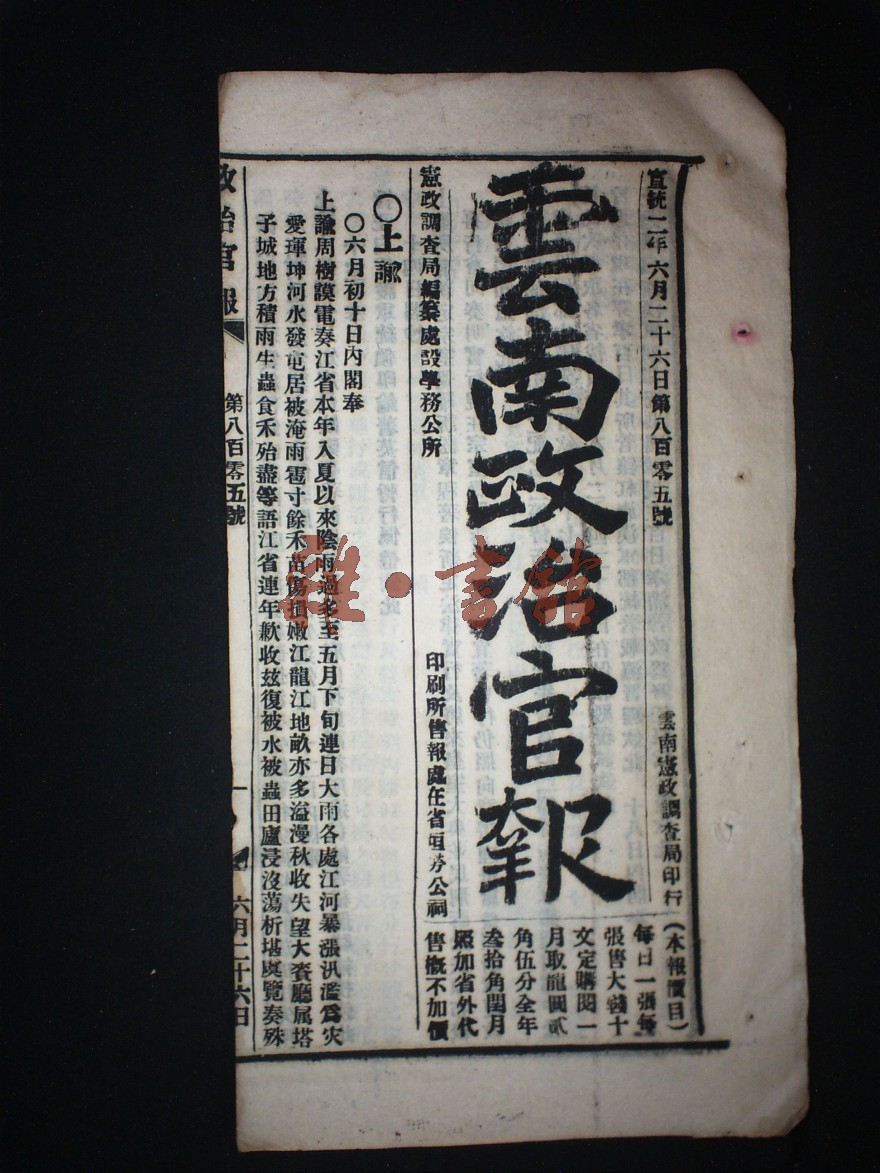 宣統二年六月二十六日第八百零五號
雲南憲政調查局印行
雲南政治官報
(本報價目)
每日一張每
張售大錢十
文定購閱一
月取龍圓貳
角伍分全年
叁拾角閏月
照加省外代
售概不加價
憲政調查局編纂處設學務公所
印刷所售報處在省垣勞公祠
〇上諭
〇六月初十日內閣奉
上諭周樹謨電奏江省本年入夏以來陰雨過多至五月下旬連日大雨各處江河暴漲汎濫為灾
愛琿坤河水發屯居被淹雨雹寸餘禾苗傷損嫩江龍江地畝亦多溢漫秋收失望大賚廳属塔
子城地方積雨生蟲食禾殆盡等語江省連年歉收茲復被水被蟲田廬浸沒蕩析堪虞覽奏殊
政治官報
第八百零五號
一
六月二十六日
雜·書館